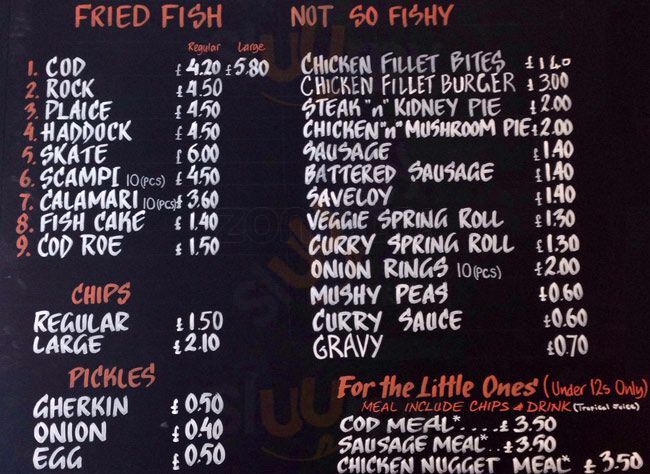 FRIED FISH
Regular Large
1. COD £4.20 £5.80
2. ROCK £4.50
3. PLAICE £4.50
4. HADDOCK £4.50
5. SKATE £6.00
6. SCAMPI 10(PCS) £4.50
7. CALAMARI 10(PCS) £3.60
8. FISH CAKE £1.40
9. COD ROE £1.50
CHIPS
REGULAR £1.50
LARGE £2.10
PICKLES
GHERKIN £0.50
ONION £0.40
EGG £0.50
NOT SO FISHY
CHICKEN FILLET BITES
CHICKEN FILLET BURGER £3.00
STEAK "n" KIDNEY PIE £2.00
CHICKEN "n" MUSHROOM PIE £2.00
SAUSAGE £1.40
BATTERED SAUSAGE £1.40
SAVELOY £1.40
VEGGIE SPRING ROLL £1.30
CURRY SPRING ROLL £1.30
ONION RINGS 10(PCS) £2.00
MUSHY PEAS £0.60
CURRY SAUCE £0.60
GRAVY £0.70
For the Little Ones (Under 12s Only)
MEAL INCLUDE CHIPS & DRINK (Tropical Juice)
COD MEAL*.... £3.50
SAUSAGE MEAL*.. £3.50
CHICKEN NUGGET MEAL* £3.50